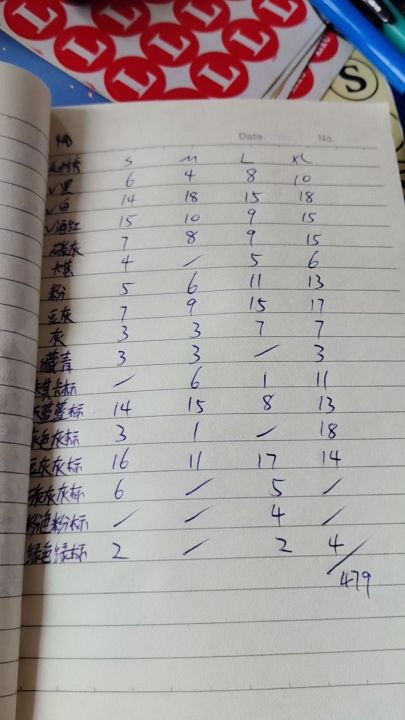 L L L L L L L L
S
Date. No.
S M L XL
✓黑 6 4 8 10
✓白 14 18 15 18
✓酒红 15 10 9 15
碳灰 7 8 9 15
卡其 4 / 5 6
粉 5 6 11 13
豆灰 7 9 15 17
灰 3 3 7 7
藏青 3 3 / 3
卡其卡标 / 6 1 11
标 14 15 8 13
灰色灰标 3 1 / 18
豆灰灰标 16 11 17 14
碳灰灰标 6 / 5 /
粉色粉标 / / 4 /
绿色绿标 2 / 2 4
/479